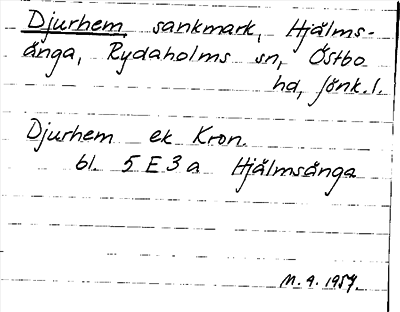 Djurhem, sankmark, Hjälms-
ånga, Rydaholms sn, Östbo
hd, Jönk. l.
Djurhem ek Kron.
bl. 5 E 3 a Hjälmsånga
M. 9. 1957.